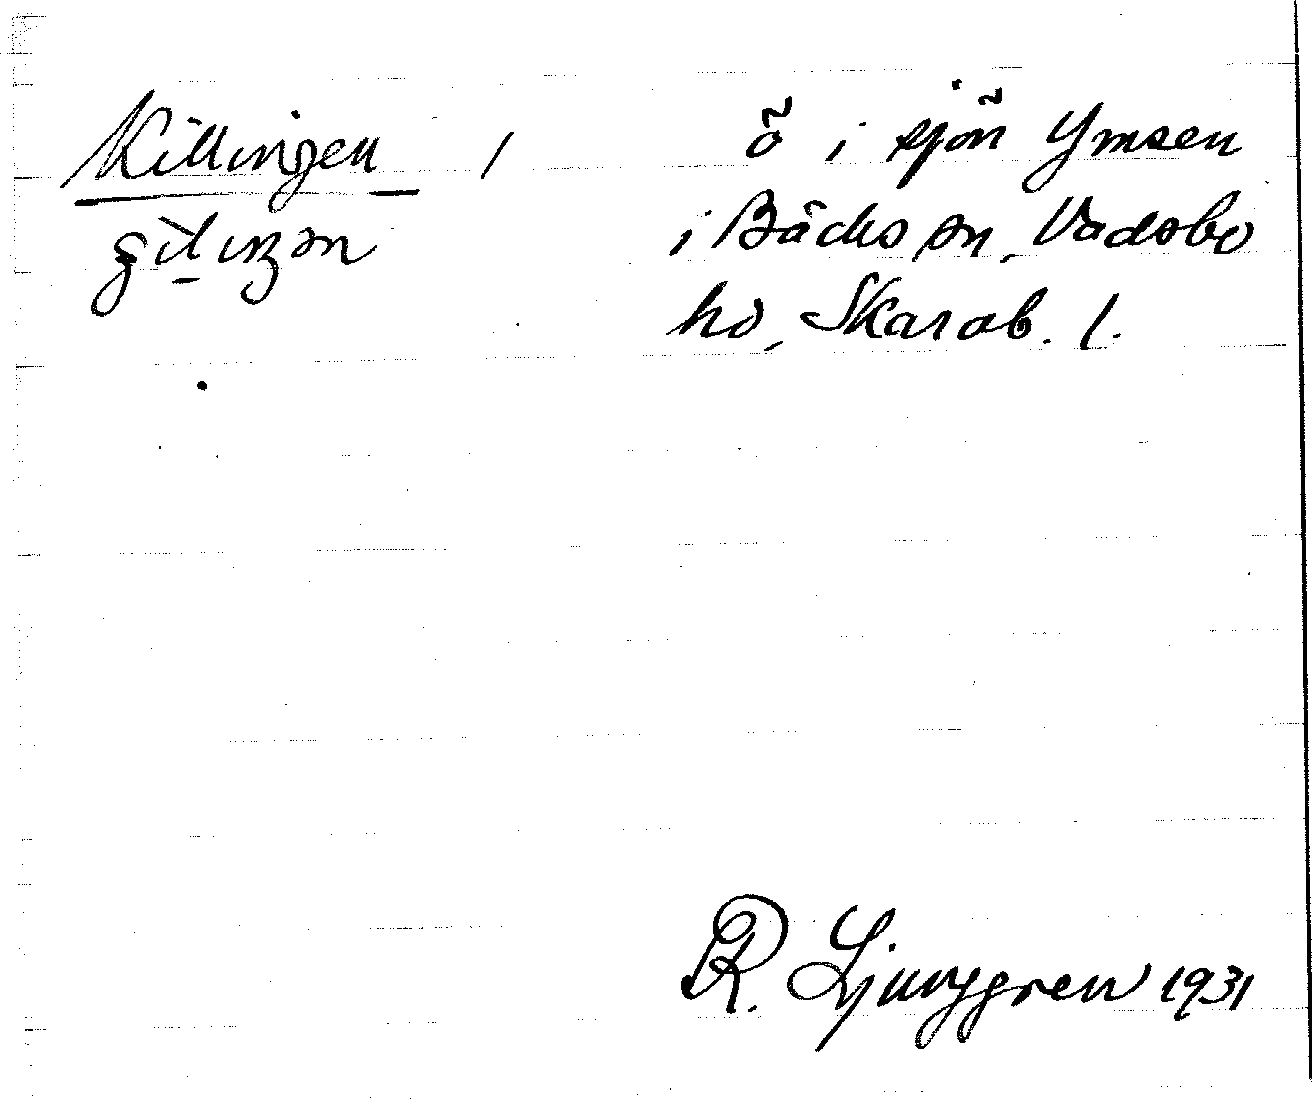 Killingen /
ö i sjön Ymsen
i Bäcks sn, Vadsbo
hd, Skarab. l.
R. Ljunggren 1931